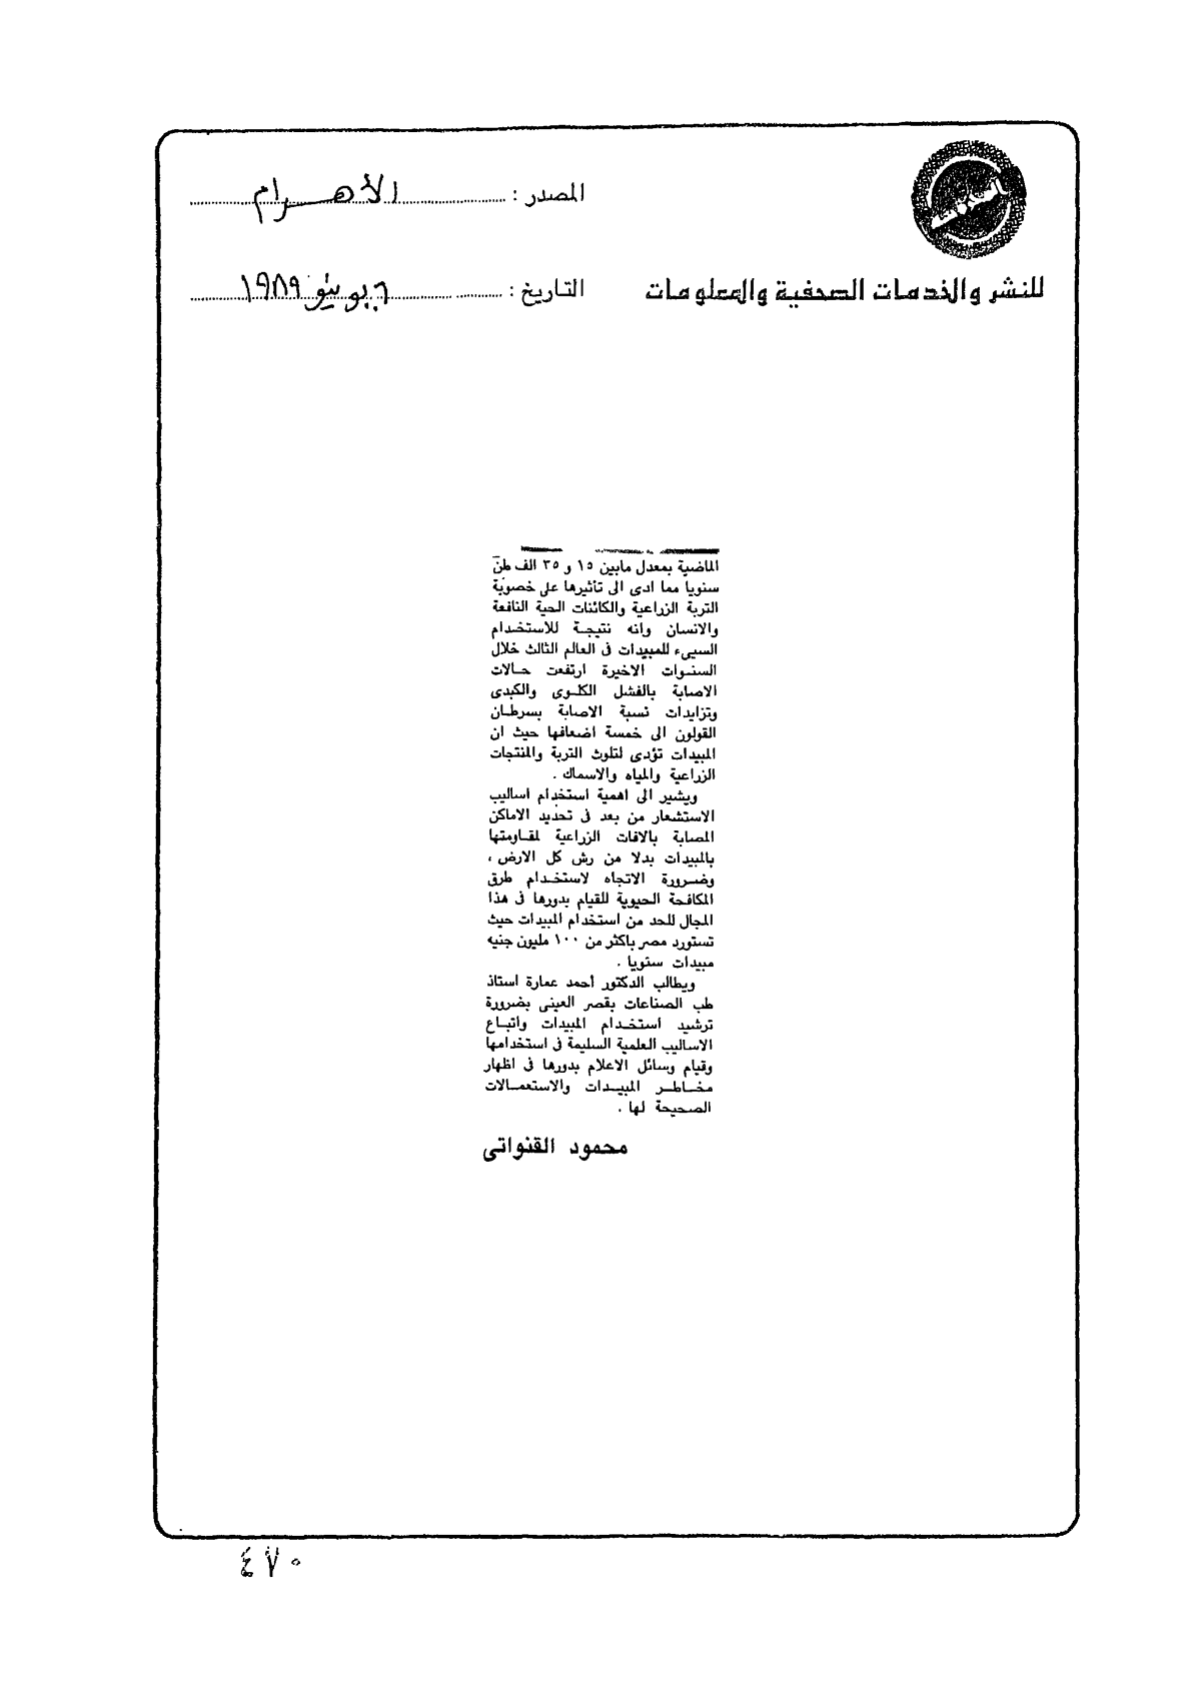 المصدر : الأهرام
للنشر والخدمات الصحفية والمعلومات
التاريخ : ٦ يونيو ١٩٨٩
الماضية بمعدل مابين ١٥ و ٣٥ الف طن
سنويا مما ادى الى تأثيرها على خصوبة
التربة الزراعية والكائنات الحية النافعة
والانسان وانه نتيجة للاستخدام
السيىء للمبيدات فى العالم الثالث خلال
السنوات الاخيرة ارتفعت حالات
الاصابة بالفشل الكلوى والكبدى
وتزايدات نسبة الاصابة بسرطان
القولون الى خمسة اضعافها حيث ان
المبيدات تؤدى لتلوث التربة والمنتجات
الزراعية والمياه والاسماك .
ويشير الى اهمية استخدام اساليب
الاستشعار من بعد فى تحديد الاماكن
المصابة بالافات الزراعية لمقاومتها
بالمبيدات بدلا من رش كل الارض ،
وضرورة الاتجاه لاستخدام طرق
المكافحة الحيوية للقيام بدورها فى هذا
المجال للحد من استخدام المبيدات حيث
تستورد مصر باكثر من ١٠٠ مليون جنيه
مبيدات سنويا .
ويطالب الدكتور أحمد عمارة استاذ
طب الصناعات بقصر العينى بضرورة
ترشيد استخدام المبيدات واتباع
الاساليب العلمية السليمة فى استخدامها
وقيام وسائل الاعلام بدورها فى اظهار
مخاطر المبيدات والاستعمالات
الصحيحة لها .
محمود القنواتى
٤٧٠